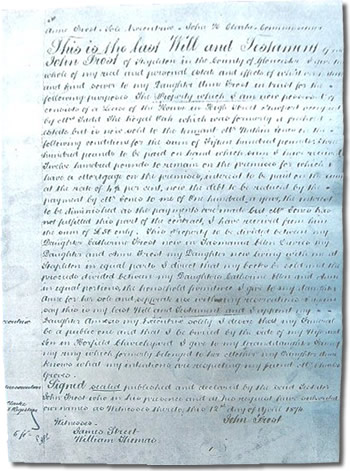 Anne Frost - Sole Executrix - John H Clarke - Commissioner
This is the last Will and Testament of me
John Frost of Stapleton in the County of Gloucester I give the
whole of my real and personal Estate and effects of what ever nature
and kind soever to my Daughter Anne Frost in trust for the
following purposes The Property which I am now possessed of
consists of a Lease of the House in High Street Newport occupied
by Mr The Royal Oak which was formerly a freehold
Estate but is now sold to the tenant Mr William Jones on the
following conditions for the sum of Fifteen hundred pounds
hundred pounds to be paid on hand which sum I have received
Twelve hundred pounds to remain on the premises for which I
have a Mortgage on the premises, interest to be paid on the sum
at the rate of 4 per cent, now the debt to be reduced by the
payment by Mr Jones to me of One hundred a year, the interest
to be diminished as the payments are made but Mr Jones has
not fulfilled this part of the contract, I have received from him
the sum of £50 only. This Property to be divided between my
Daughter Catherine Frost now in Tasmania Ellen my
Daughter and Anne Frost my Daughter now living with me at
Stapleton in equal parts I direct that my books be sold and the
proceeds divided between my Daughters Catherine Ellen and Anne
in equal portions, the household furniture I give to my daughter
Anne for her sole and separate use without any reservations I
say this is my last Will and Testament and I appoint my
Daughter Anne my Executrix lastly I desire that my Funeral
be a public one and that I be buried by the side of my Wife and
Son in Horfield Churchyard I give to my Granddaughter
my ring which formerly belonged to her Mother my Daughter Anne
knows what my intentions are respecting my friend Mr
Signed sealed published and declared by the said Testator
John Frost who in his presence and at his request have subscribed
our names as Witnesses thereto this 12th day of April 1874
John Frost
Witnesses
James Street
William Thomas